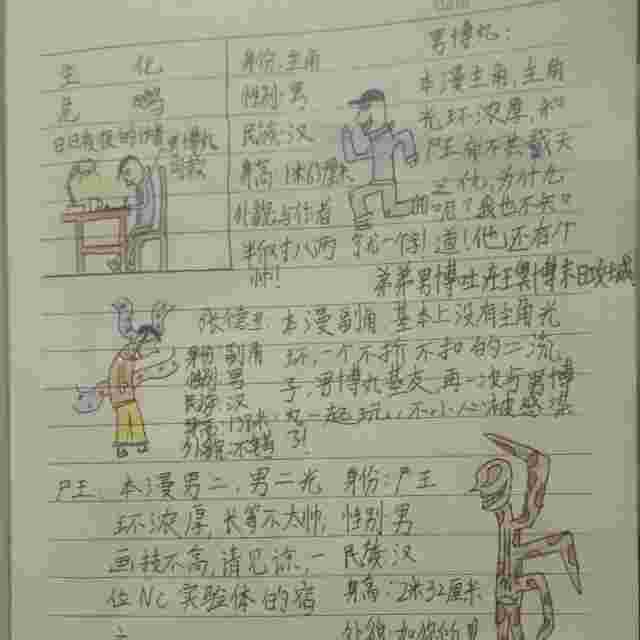 生 化
危 鸭
身份:主角
性别:男
民族:汉
身高:1米67厘米
外貌:与作者
半斤对八两
帅!
男博丸:
本漫主角,主角
光环浓厚,和
尸王有不共戴天
之仇,为什么
呢?我也不知
道!他还有个
弟弟男博吐
张佳卫:本漫副角,基本上没有主角光
环,一个不折不扣的二流
子,男博丸基友,再一次与男博
丸一起玩,不小心被感染
了!
身份:副角
性别:男
民族:汉
外貌:不错
尸王:本漫男二,男二光
环浓厚,长等不大帅,
画技不高,请见谅.一
位NC实验体的宿
主
身份:尸王
性别男
民族汉
身高:2米32厘米